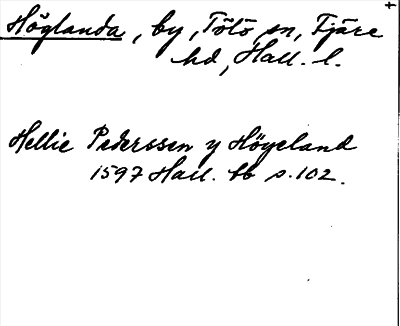 Höglanda, by, Tölö sn, Fjäre
hd, Hall. l.
Hellie Pederssen y Höyeland
1597 Hall. bb s. 102.